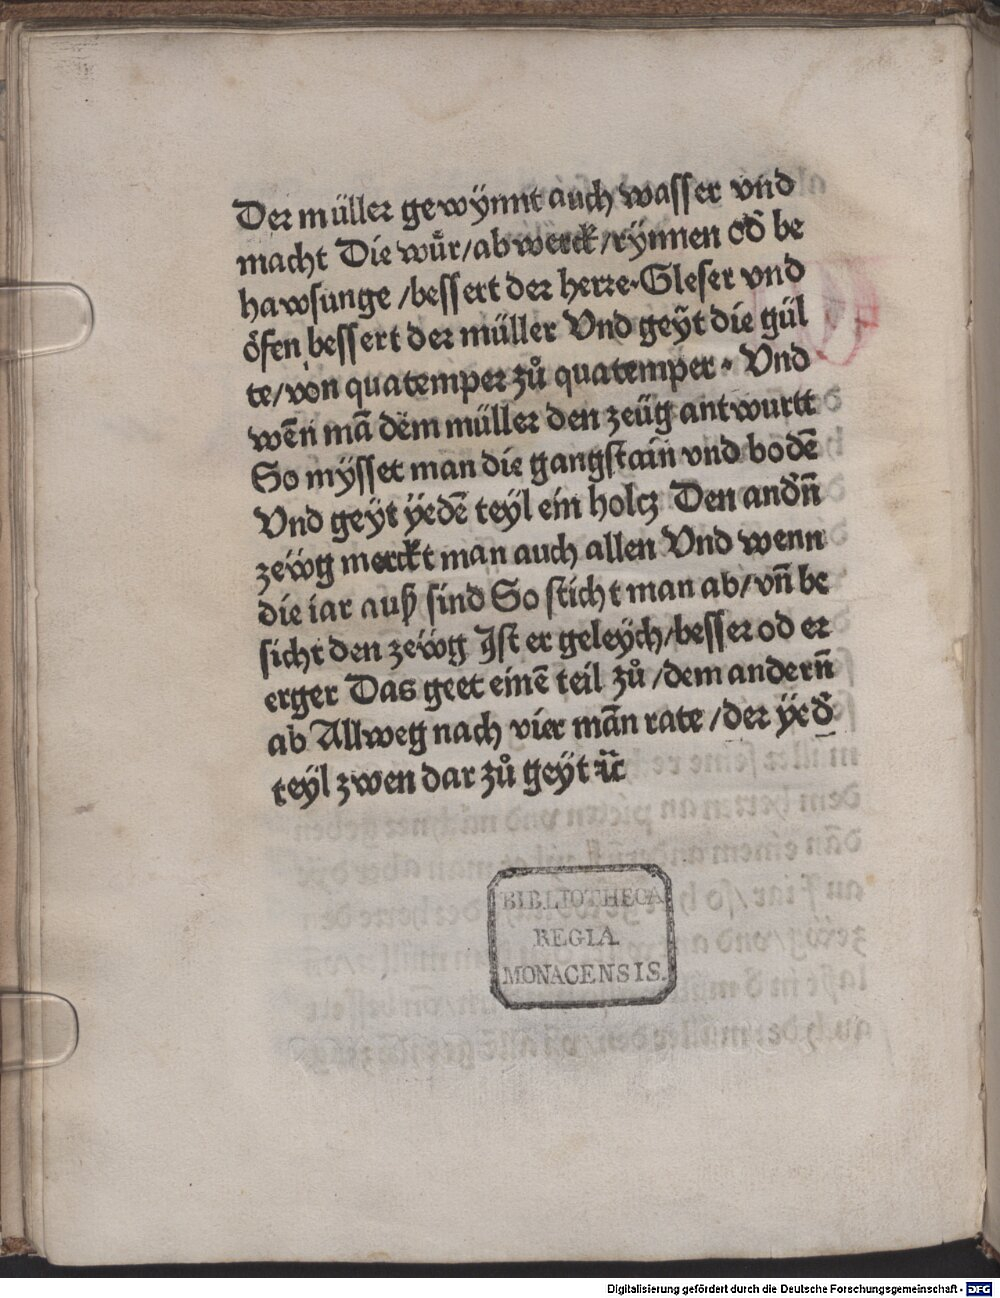 Der müller gewÿnnt auch wasser vnd
macht Die wůr/abwerck/rÿnnen od̄ be
hawsunge /bessert der herre·Gleser vnd
öfen bessert der müller Vnd geÿt die gül
te/von quatemper zů quatemper · Vnd
wēn mā dem müller den zeüg antwurtt
So mÿsset man die gangstain vnd bodē
Vnd geÿt ÿedē teyl ein holcz Den and̄n̄
zeẅg merckt man auch allen Vnd wenn
die iar auß sind So sticht man ab/vn̄ be
sicht den zeẅg Jst er geleÿch/besser od er
erger Das geet einē teil zů /dem andern̄
ab Allweg nach vier mān rate /der ÿed̄
teyl zwen dar zů geÿt ꝛc̄
BIBLIOTHECA
REGIA
MONACENSIS.
Digitalisierung gefördert durch die Deutsche Forschungsgemeinschaft - DFG